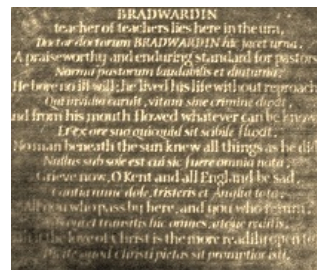 BRADWARDIN
teacher of teachers lies here in the urn,
Doctor doctorum BRADWARDIN hic jacet urna,
A praiseworthy and enduring standard for pastors
Norma pastorum laudabilis et diuturna:
He bore no ill will; he lived his life without reproach
Qui invidia caruit, vitam sine crimine
and from his mouth flowed whatever can be know
Et ex ore suo quicquid sit scibile fluxit.
No man beneath the sun knew all things as he did
Nullus sub sole est cui sic fuere omnia nota;
Grieve now, O Kent and all England be sad,
nunc dole, tristeris et Anglia tota;
you who pass by here, and you who return,
transitis hic omnes, atque
the love of Christ is the more readily open to
quod Christi pietas sit promptior